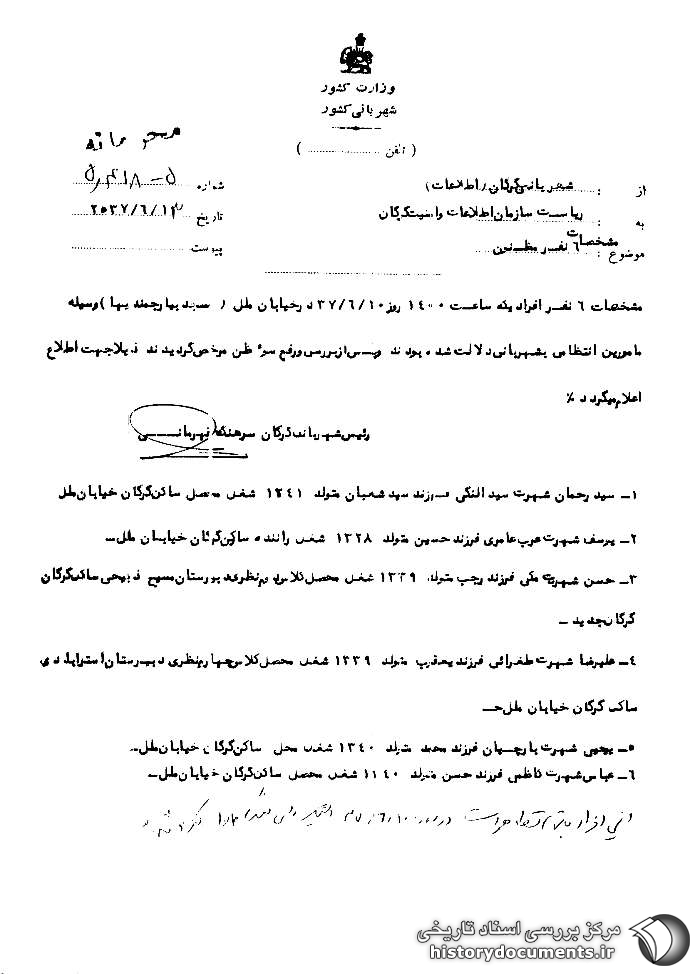 وزارت کشور
شهربانی کشور
( تلفن ............ )
محرمانه
از : شهربانی گرگان (اطلاعات)
شماره ۵-
به : ریاست سازمان اطلاعات و امنیت گرگان
تاریخ ۲۵۳۷/۶/۱۳
موضوع : مشخصات ۶ نفر مظنون
پیوست
مشخصات ۶ نفر افرادیکه ساعت ۱۴۰۰ روز ۳۷/۶/۱۰ در خیابان ملل ( ) وسیله
مامورین انتظامی بشهربانی دلالت شده بودند و پس از بررسی و رفع سوء ظن مرخص گردیدند ذیلا جهت اطلاع
اعلام میگردد ٪
رئیس شهربانی گرگان سرهنگ قهرمانی
۱ـ سید رحمان شهرت سید النگی فرزند سید شعبان متولد ۱۳۴۱ شغل محصل ساکن گرگان خیابان ملل
۲ـ یوسف شهرت عرب عامری فرزند حسین متولد ۱۳۲۸ شغل راننده ساکن گرگان خیابان ملل ـ
۳ـ حسن شهرت ملکی فرزند رجب متولد ۱۳۳۹ شغل محصل کلاس نظری دبیرستان مسیح ذبیحی ساکن گرگان
گرگان جدید ـ
۴ـ علیرضا شهرت طغرائی فرزند یعقوب متولد ۱۳۳۹ شغل محصل کلاس چهارم نظری دبیرستان استرابادی
ساکن گرگان خیابان ملل ـ
۵ـ یحیی شهرت پارچیان فرزند محمد متولد ۱۳۴۰ شغل محصل ساکن گرگان خیابان ملل ـ
۶ـ عباس شهرت کاظمی فرزند حسن متولد ۱۳۴۰ شغل محصل ساکن گرگان خیابان ملل ـ
مرکز بررسی اسناد تاریخی
historydocuments.ir